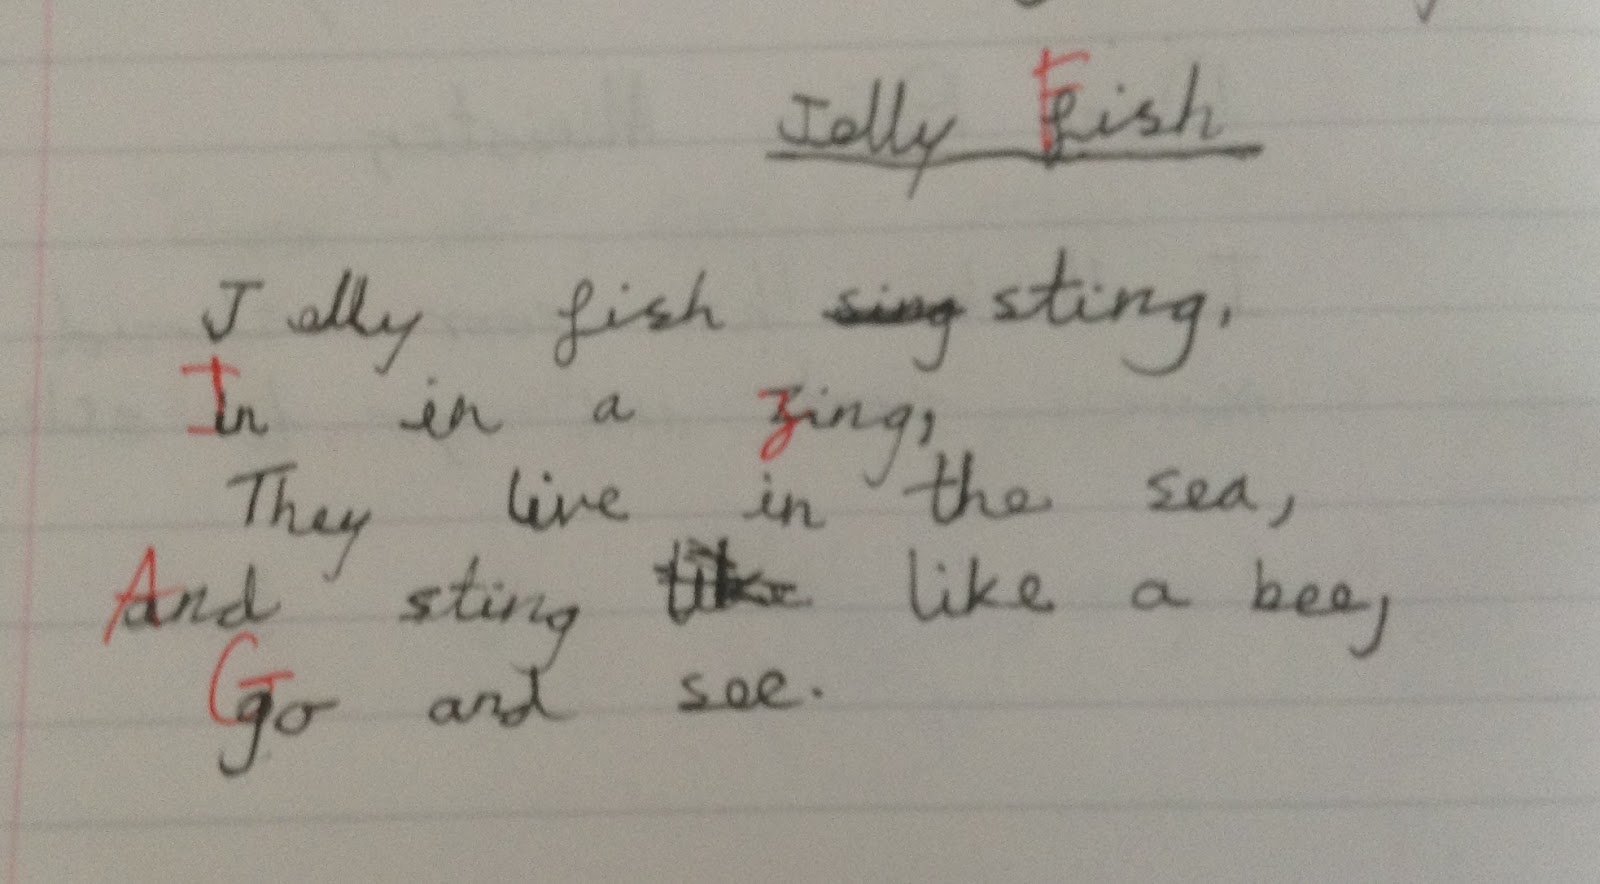 Jelly Fish
Jelly fish sing sting,
In in a zing,
They live in the sea,
And sting like a bee,
Go and see.